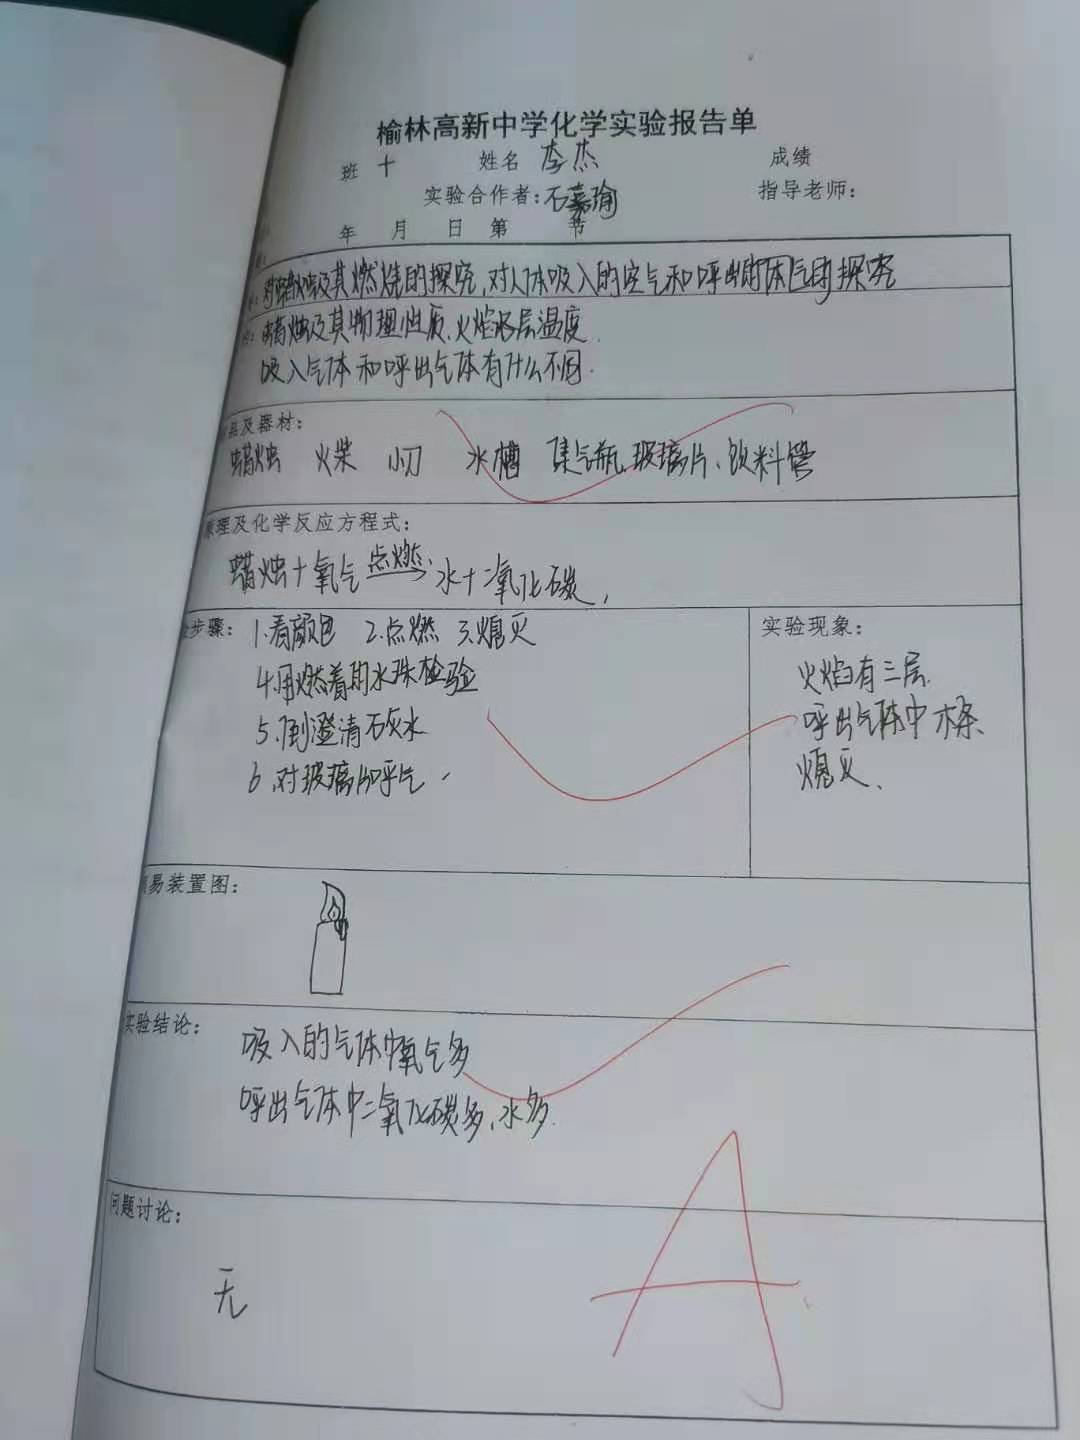 榆林高新中学化学实验报告单
班 十 姓名 李杰 成绩
实验合作者:石嘉瑜 指导老师:
年 月 日 第 节
对蜡烛及其燃烧的探究,对人体吸入的空气和呼出的气体的探究
蜡烛及其物理性质.火焰各层温度.
吸入气体和呼出气体有什么不同.
品及器材:
蜡烛 火柴 小刀 水槽 集气瓶.玻璃片、饮料管
原理及化学反应方程式:
蜡烛+氧气 点燃→ 水+二氧化碳,
步骤: 1.看颜色 2.点燃 3.熄灭
4.用燃着的木珠检验
5.倒澄清石灰水
6.对玻璃片呼气
实验现象:
火焰有三层.
呼出气体中木条、
熄灭、
易装置图:
实验结论:
吸入的气体中氧气多
呼出气体中二氧化碳多、水多.
问题讨论:
无
A